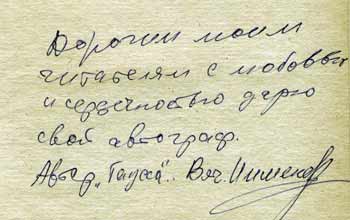 Дорогим моим
читателям с любовью
и сердечностью дарю
свой автограф.
Автор „ Вяч.